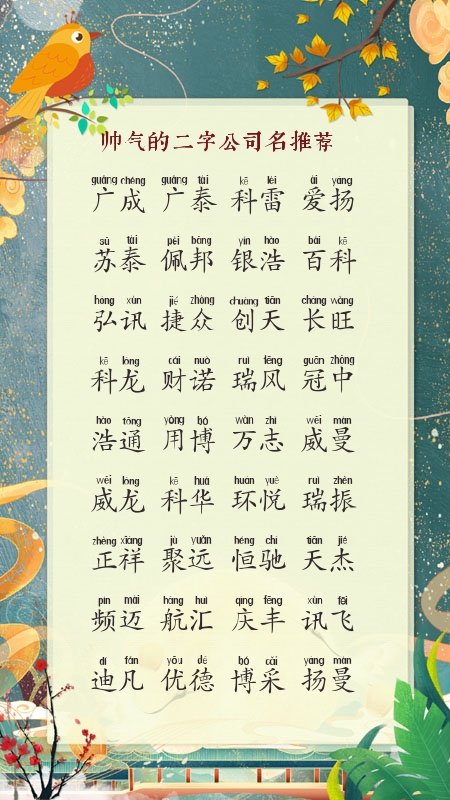 帅气的二字公司名推荐
guǎng chéng guǎng tài kē léi ài yáng
广成 广泰 科雷 爱扬
sū tài pèi bāng yín hào bǎi kē
苏泰 佩邦 银浩 百科
hóng xùn jié zhòng chuàng tiān cháng wàng
弘讯 捷众 创天 长旺
kē lóng cái nuò ruì fēng guān zhōng
科龙 财诺 瑞风 冠中
hào tōng yòng bó wàn zhì wēi màn
浩通 用博 万志 威曼
wēi lóng kē huá huán yuè ruì zhèn
威龙 科华 环悦 瑞振
zhèng xiáng jù yuǎn héng chí tiān jié
正祥 聚远 恒驰 天杰
pín mài háng huì qìng fēng xùn fēi
频迈 航汇 庆丰 讯飞
dí fán yōu dé bó cǎi yáng màn
迪凡 优德 博采 扬曼